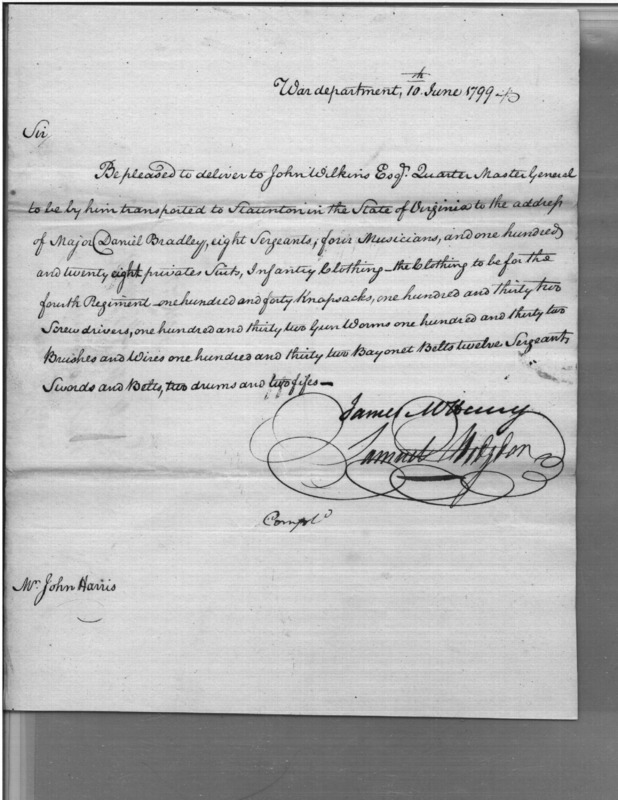 War department, 10th June 1799
Sir,
Be pleased to deliver to John Wilkins Esqr. Quarter Master General
to be by him transported to Staunton in the State of Virginia to the address
of Major Daniel Bradley, eight Sergeants, four Musicians, and one hundred
and twenty eight privates Suits, Infantry Clothing—the Clothing to be for the
fourth Regiment—one hundred and forty Knapsacks, one hundred and thirty two
Screw drivers, one hundred and thirty two Gun Worms one hundred and thirty two
Brushes and Wires one hundred and thirty two Bayonet Belts twelve Sergeants
Swords and Belts, two drums and two fifes—
James McHenry
Samuel Hodgdon
Compld
Mr. John Harris